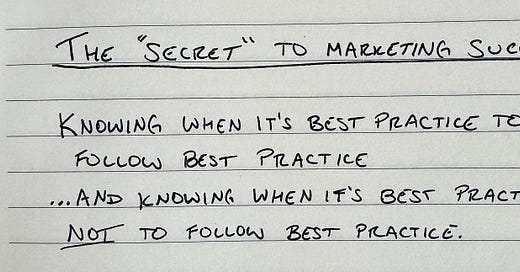 THE "SECRET" TO MARKETING SUC
KNOWING WHEN IT'S BEST PRACTICE TO
FOLLOW BEST PRACTICE
...AND KNOWING WHEN IT'S BEST PRACT
NOT TO FOLLOW BEST PRACTICE.